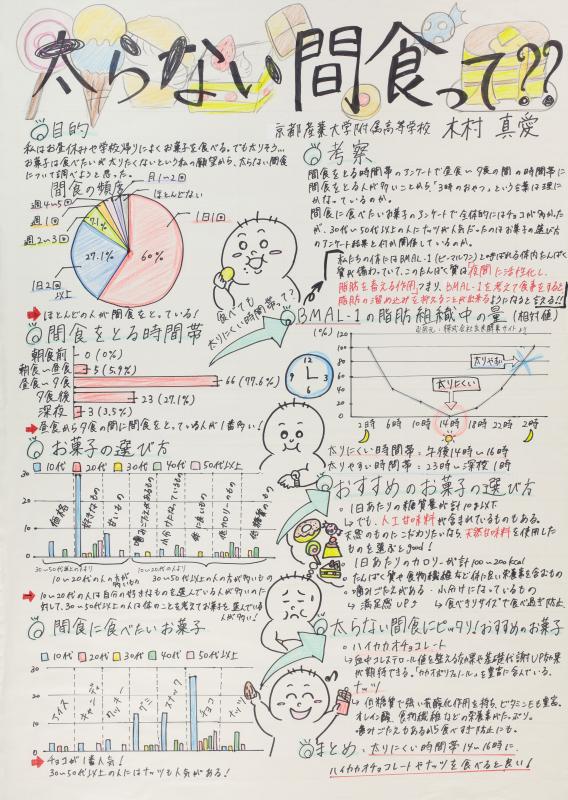 太らない間食って??
京都産業大学附属高等学校 木村 真愛
目的
私はお昼休みや学校帰りによくお菓子を食べる。でも太りそう…
お菓子は食べたいが太りたくないという私の願望から、太らない間食
について調べようと思った。
間食の頻度
月1〜2回
ほとんどない
週4〜5回
週1回
週2〜3回
1日2回以上
1日1回
7.1%
27.1%
60%
ほとんどの人が間食をとっている!
間食をとる時間帯
朝食前 0(0%)
朝食〜昼食 5(5.9%)
昼食〜夕食 66(77.6%)
夕食後 23(27.1%)
深夜 3(3.5%)
昼食から夕食の間に間食をとっている人が1番多い!
お菓子の選び方
10代 20代 30代 40代 50代以上
30
20
10
0
価格
好きなもの
甘いもの
噛みごたえがあるもの
小分けになっているもの
低カロリーのもの
低糖質のもの
30〜50代以上より
10〜20代の人の方が多いもの
10〜20代の人より
30〜50代以上の人の方が多いもの
10〜20代の人は自分の好きなものを選んでいる人が多いのに
対して、30〜50代以上の人は体のことを考えてお菓子を選んでいる
人が多い!
間食に食べたいお菓子
10代 20代 30代 40代 50代以上
30
20
10
0
アイス
クッキー
グミ
スナック
チョコ
ナッツ
チョコが1番人気!
30〜50代以上の人にはナッツも人気がある!
食べても
太りにくい時間帯って?
考察
間食をとる時間帯のアンケートで昼食〜夕食の間の時間帯に
間食をとる人が多いことから、「3時のおやつ」という言葉は理に
かなっているのか。
間食に食べたいお菓子のアンケートで全体的にはチョコが多かった
が、30代〜50代以上の人にナッツが人気だったのはお菓子の選び方
のアンケート結果と何か関係しているのか。
私たちの体にはBMAL-1(ビーマルワン)と呼ばれる体内たんぱく
質が備わっていて、このたんぱく質は「夜間に活性化し、
脂肪を蓄える作用」つまり、BMAL-1を考えて食事をすると
脂肪の溜め込みを抑えることが出来るようになると言える!!
BMAL-1の脂肪組織中の量(相対値)
(%)
120
100
80
60
40
20
0
太りやすい
太りにくい
2時 6時 10時 14時 18時 22時 2時
太りにくい時間帯:午後14時〜16時
太りやすい時間帯:23時〜深夜1時
おすすめのお菓子の選び方
1日あたりの糖質量が計10g以下
→でも、人工甘味料が含まれているものもある。
天然のものにこだわりたいなら天然甘味料を使用した
ものを選ぶとgood!
1日あたりのカロリーが計100〜200kcal
たんぱく質や食物繊維など体に良い栄養素を含むもの
噛みごたえがある・小分けになっているもの
→満足感UP↑ →食べきりサイズで食べ過ぎ防止
太らない間食にピッタリ!おすすめのお菓子
ハイカカオチョコレート
→血中コレステロール値を整える効果や基礎代謝UP効果
が期待できる。「カカオポリフェノール」を豊富に含んでいる。
ナッツ
→低糖質で強い抗酸化作用を持ち、ビタミンEも豊富。
オレイン酸、食物繊維などの栄養素がたっぷり。
噛みごたえもあるから食べすぎ防止にも。
まとめ:太りにくい時間帯14〜16時に、
ハイカカオチョコレートやナッツを食べると良い!